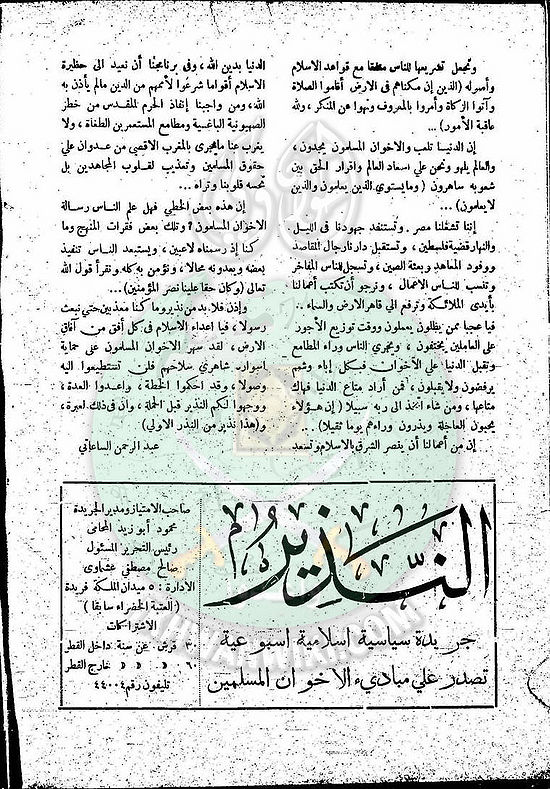 وتجعل تشريعها للناس متفقا مع قواعد الاسلام
وأصوله (الذين إن مكناهم فى الارض أقاموا الصلاة
وآتوا الزكاة وأمروا بالمعروف ونهوا عن المنكر ، ولله
عاقبة الأمور) ...
إن الدنيا تلعب والاخوان المسلمون يجدون ،
والعالم يلهو ونحن على اسعاد العالم واقرار الحق بين
شعوبه ساهرون (وما يستوى الذين يعلمون والذين
لا يعلمون) ...
إننا تشغلنا مصر . وتستنفد جهودنا فى الليل
والنهار قضية فلسطين ، وتستقبل دارنا رجال المقاصد
ووفود المعاهد وبعثة الصين ، وتسجل للناس المفاخر
وتنسب للناس الاعمال ، ونرجو أن تكتب أعمالنا
بأيدى الملائكة وترفع الى قاهر الارض والسماء ..
فيا عجبا ممن يظلون يعملون ووقت توزيع الأجور
على العاملين يختفون ، ويجرى الناس وراء المطامع
وتقبل الدنيا على الأخوان فبكل إباء وشمم
يرفضون ولا يقبلون ، فمن أراد متاع الدنيا فهاك
متاعها ، ومن شاء اتخذ الى ربه سبيلا (إن هؤلاء
يحبون العاجلة ويذرون وراءهم يوما ثقيلا) ...
إن من أعمالنا أن يقصر الشرق بالاسلام وتسعد
الدنيا بدين الله ، وفى برنامجنا أن نعيد الى حظيرة
الاسلام أقواما شرعوا لأممهم من الدين مالم يأذن به
الله ، ومن واجبنا إنقاذ الحرم المقدس من خطر
الصهيونية الباغية ومطامع المستعمرين الطغاة ، ولا
يغرب عنا مايجرى بالمغرب الاقصى من عدوان على
حقوق المسلمين وتعذيب لقلوب المجاهدين بل
تحسه قلوبنا وتراه ...
إن هذه بعض الخطى فهل علم الناس رسالة
الاخوان المسلمون ؟ وتلك بعض فقرات المنهج وما
كنا إذ رسمناه لاعبين ، ويستبعد الناس تنفيذ
بعضه ويعدونه محالا ، ونؤمن به كله ونقرأ قول الله
تعالى (وكان حقا علينا نصر المؤمنين) ...
وإذن فلا بد من نذير وما كنا معذبين حتى نبعث
رسولا ، فيا اعداء الاسلام فى كل أفق من آفاق
الارض ، لقد سهر الاخوان المسلمون على حماية
اسواره شاهرى سلاحهم فلن تستطيعوا اليه
وصولا ، وقد احكموا الخطة ، واعدوا العدة ،
ووجهوا لكم النذير قبل الحملة ، وان فى ذلك لعبرة ،
و (هذا نذير من النذر الاولى)
عبد الرحمن الساعاتي
النذير
جريدة سياسية اسلامية اسبوعية
تصدر على مبادىء الاخوان المسلمين
صاحب الامتياز ومدير الجريدة
محمود أبو زيد المحامى
رئيس التحرير المسئول
صالح مصطفى عشماوى
الادارة : ٥ ميدان الملكة فريدة
( العتبة الخضراء سابقا )
الاشتراكات
٣٠ قرش عن سنة داخل القطر
٦٠ » » » خارج القطر
تليفون رقم ٤٤٠٠٤